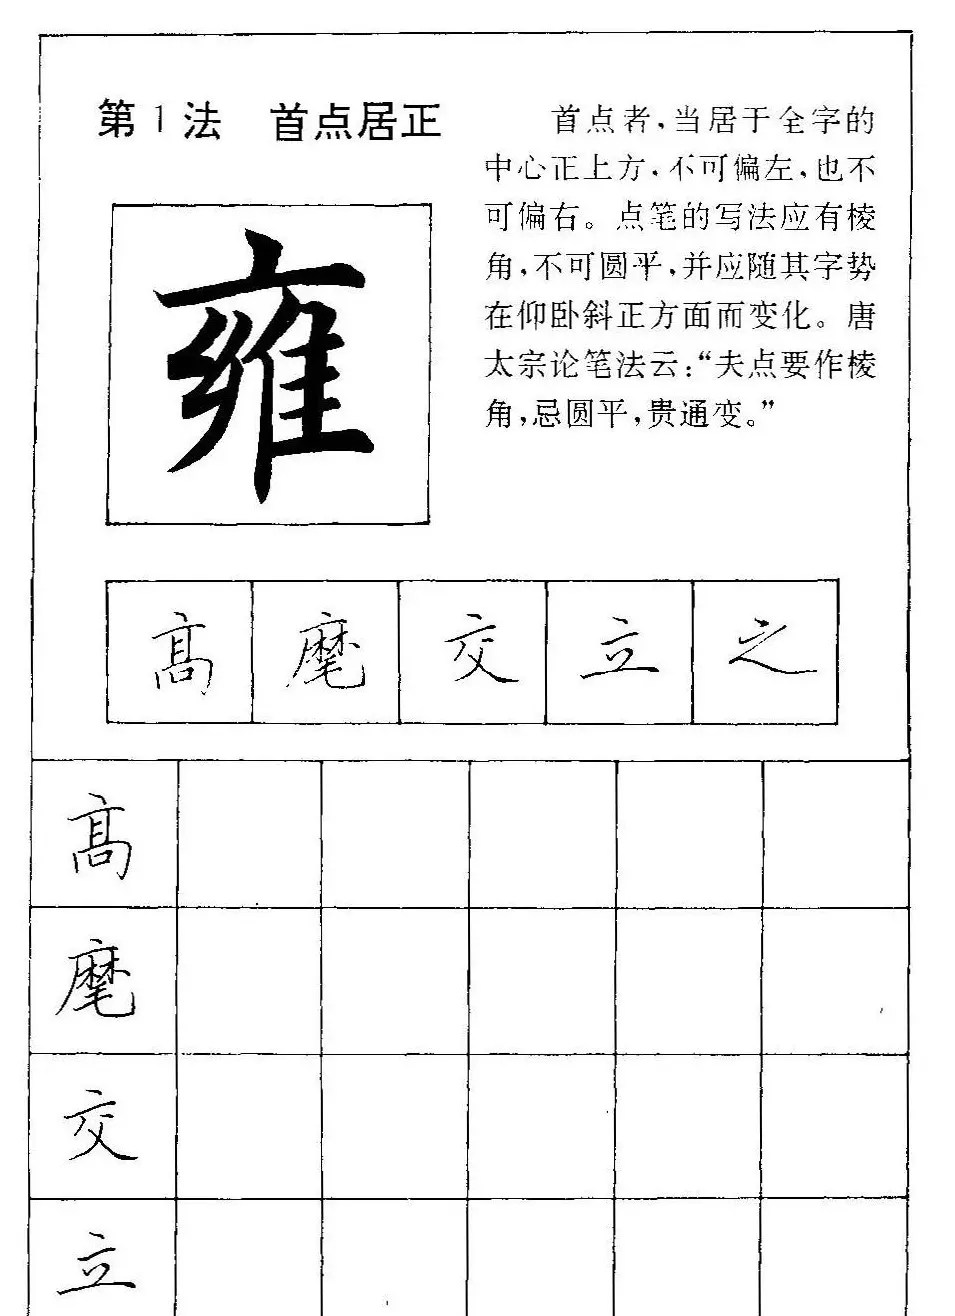 第1法 首点居正
首点者，当居于全字的
中心正上方，不可偏左，也不
可偏右。点笔的写法应有棱
角，不可圆平，并应随其字势
在仰卧斜正方面而变化。唐
太宗论笔法云：“夫点要作棱
角，忌圆平，贵通变。”
雍
高 麾 交 立 之
高
麾
交
立